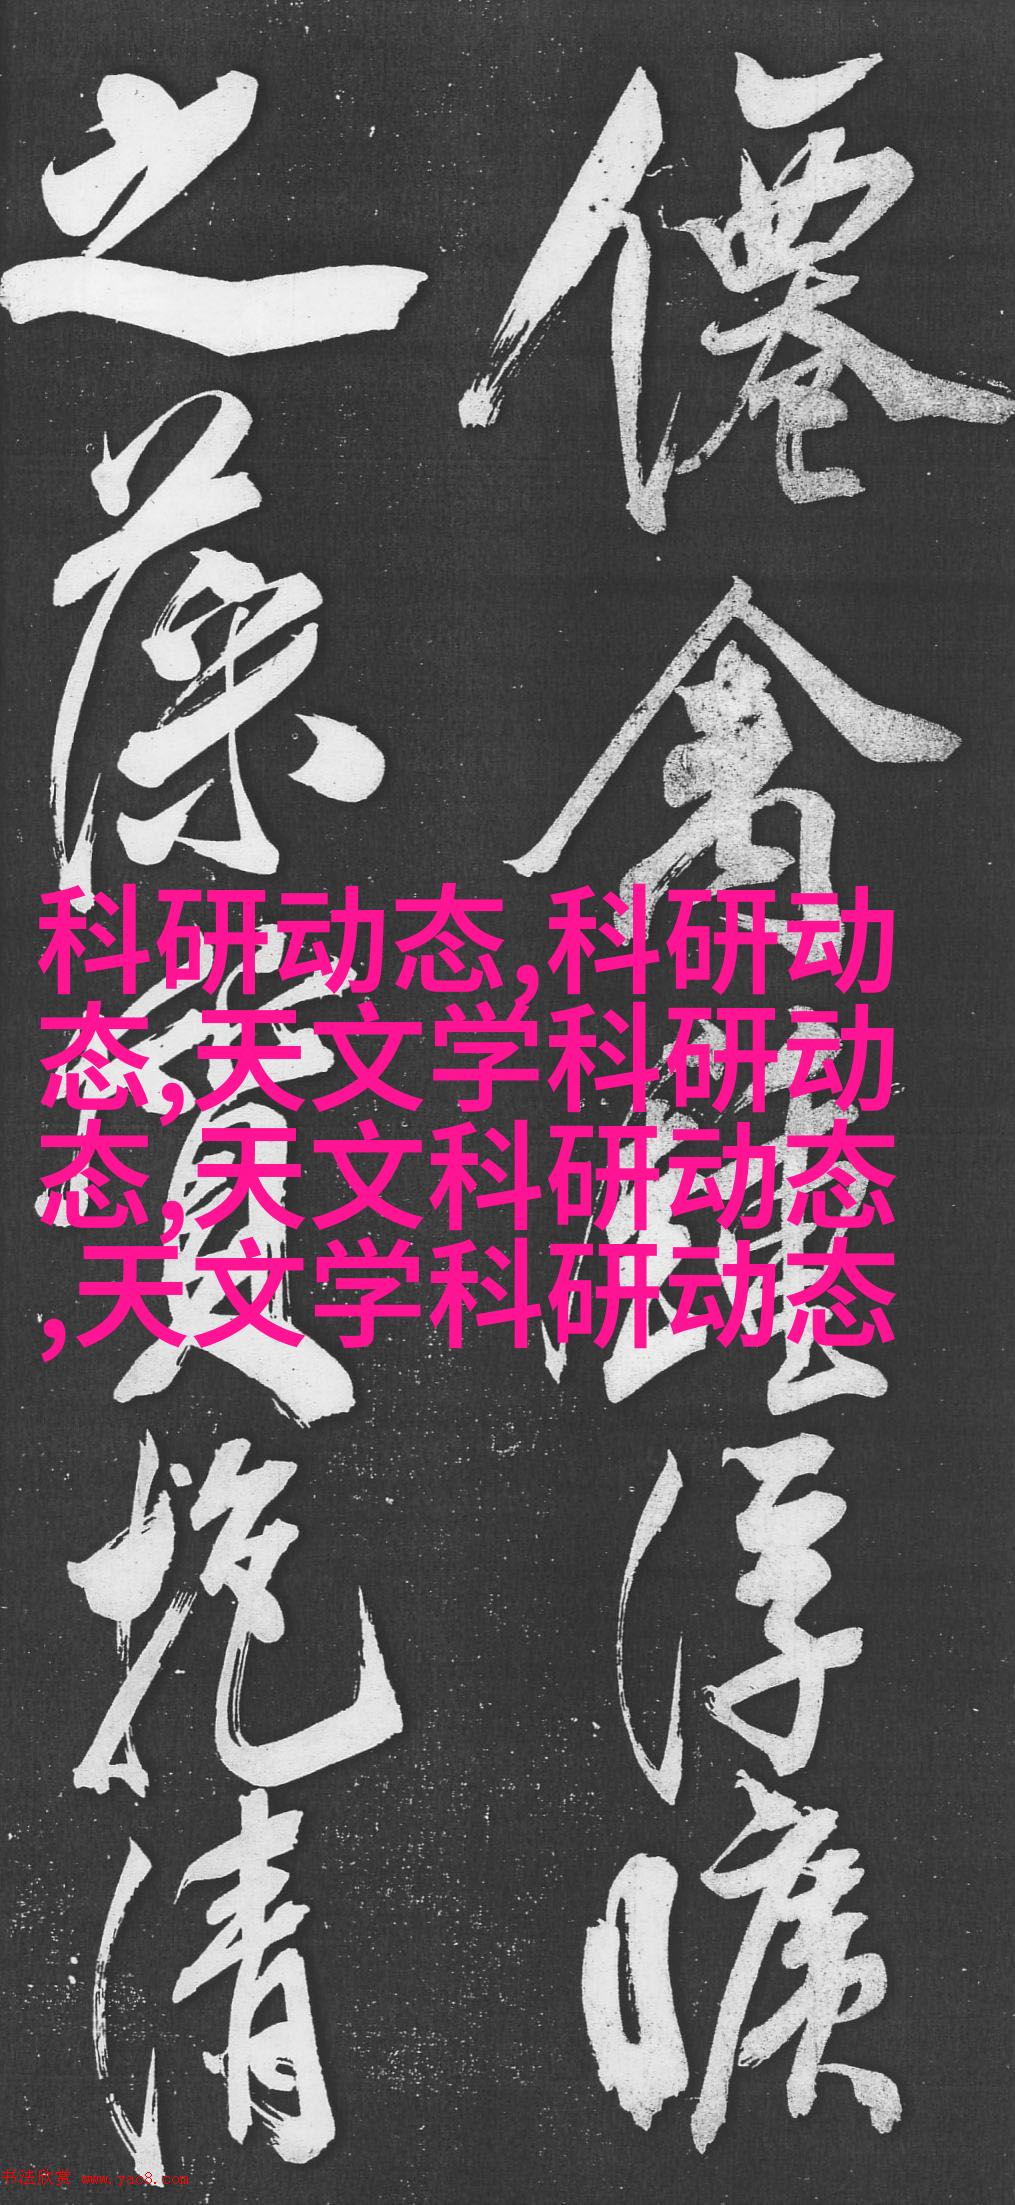 僊禽鍾浮曠
之藻質抱清
科研动态,科研动
态,天文学科研动
态,天文科研动态
,天文学科研动态
书法欣赏 www.yac8.com